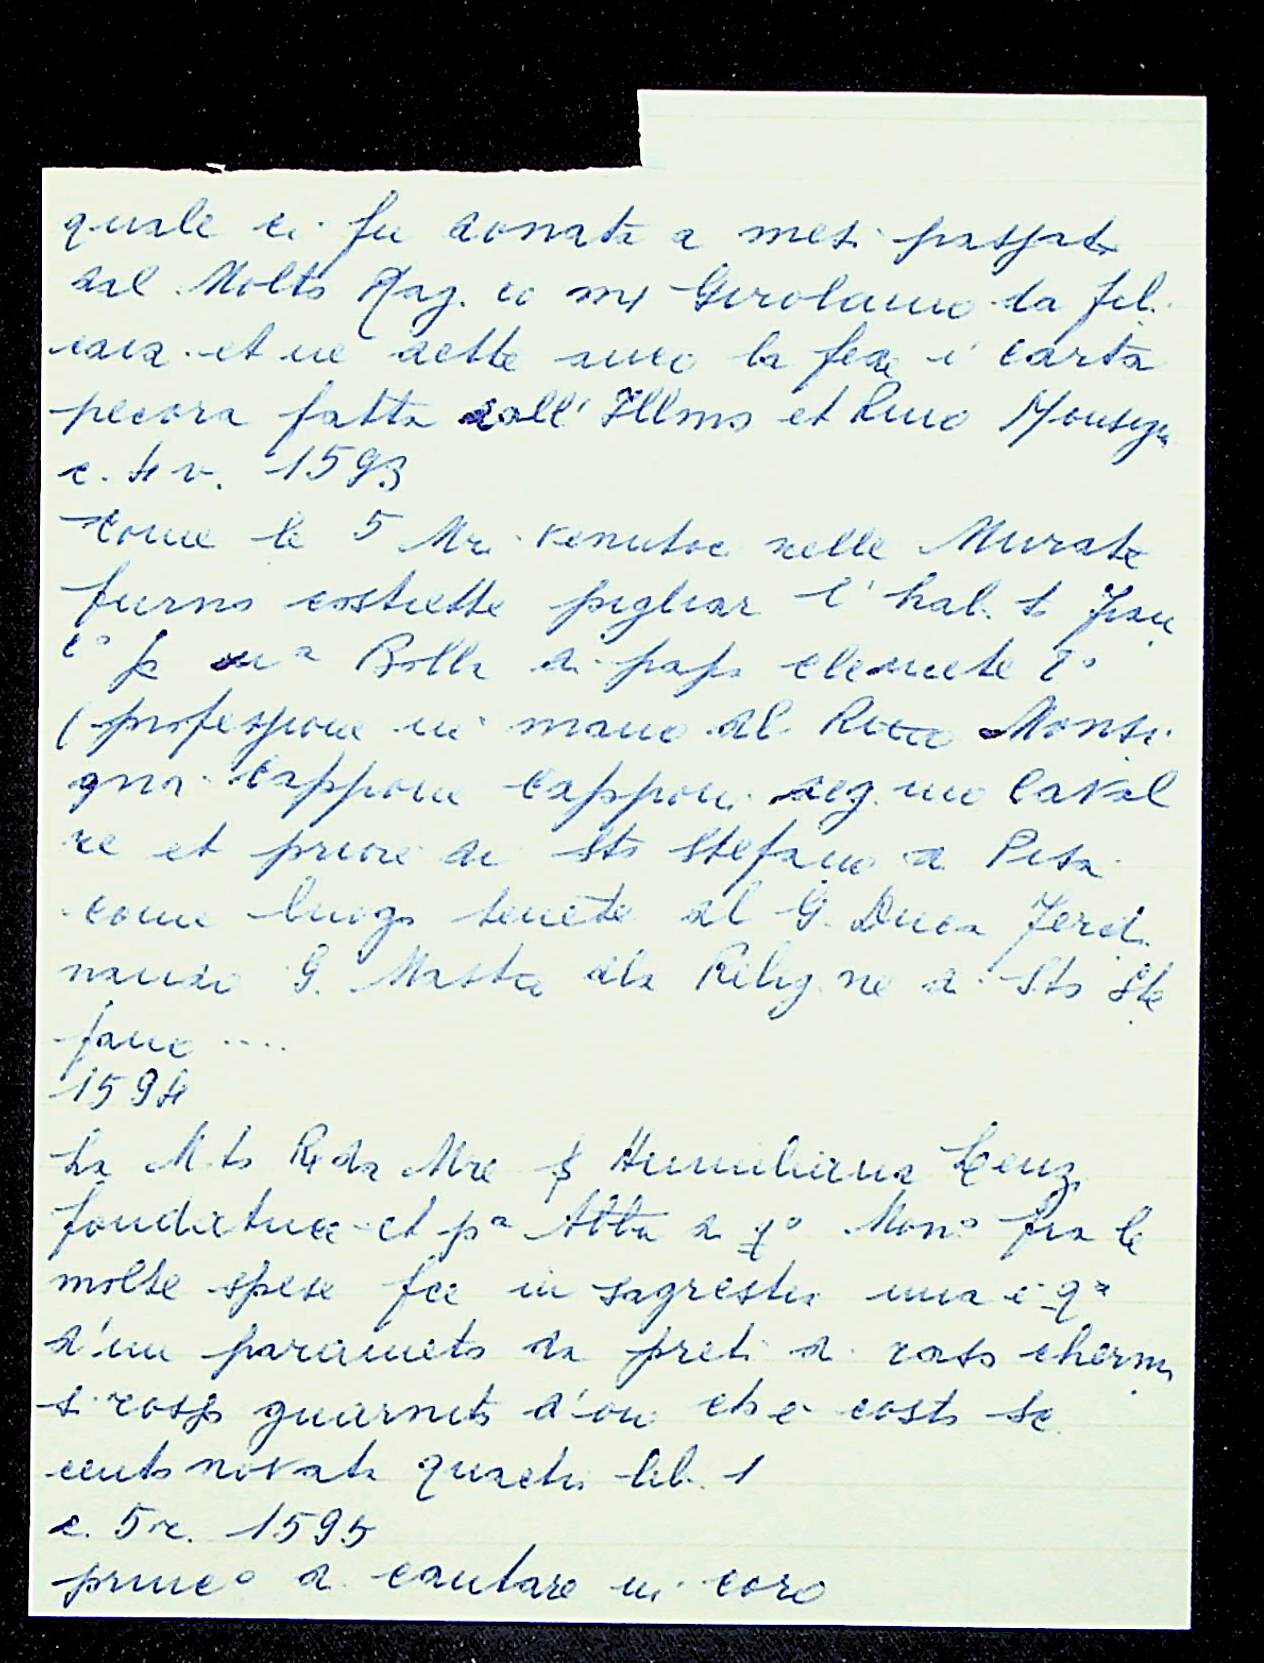 quale ci fu donata a mesi passati
dal Molto Mag.co mr Girolamo da fili
caia et ne dette anco la fede i carta
pecora fatta dall' Illmo et Rmo Monsign
c. 4 v. 1593
Come le 5 Mri venutoe nelle Murate
furno costrette pigliar l' hab. to
una Bolla di papa clemente
(professione in mano del Monsi
gnor Cappone Capponi deg.mo Caval
re et priore di Sto Stefano a Pisa
come luogo tenete del G. Duca Ferdi
nando G. Mastro dla Relig.ne di Sto Ste
fano ....
1594
La M.to Rda Mre S Humiliana Lenzi
fondatrice et pa Abba di qo Mono fra le
molte spese fce in sagrestia una è qa
d'un parameto da preti di raso chermi
si rosso guarnito d'oro che costo se
cento novata quactro lib. 1
c. 5 r. 1595
princo a cantare in coro